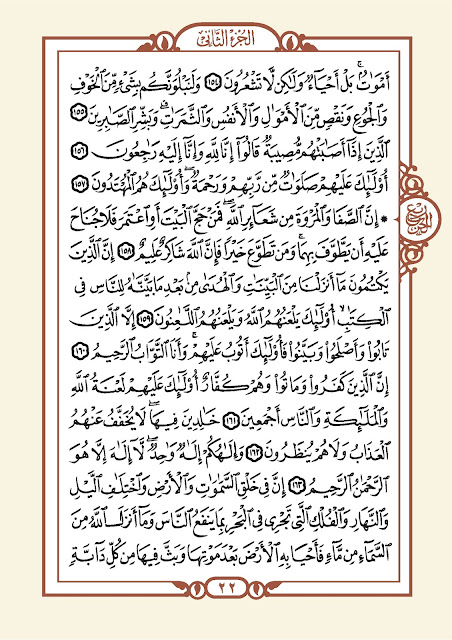 الجزء الثاني
أَمْوَاتٌۢ بَلْ أَحْيَآءٌ وَلَٰكِن لَّا تَشْعُرُونَ ١٥٤ وَلَنَبْلُوَنَّكُم بِشَىْءٍ مِّنَ ٱلْخَوْفِ
وَٱلْجُوعِ وَنَقْصٍ مِّنَ ٱلْأَمْوَٰلِ وَٱلْأَنفُسِ وَٱلثَّمَرَٰتِۗ وَبَشِّرِ ٱلصَّٰبِرِينَ ١٥٥
ٱلَّذِينَ إِذَآ أَصَٰبَتْهُم مُّصِيبَةٌ قَالُوٓا۟ إِنَّا لِلَّهِ وَإِنَّآ إِلَيْهِ رَٰجِعُونَ ١٥٦
أُو۟لَٰٓئِكَ عَلَيْهِمْ صَلَوَٰتٌ مِّن رَّبِّهِمْ وَرَحْمَةٌۖ وَأُو۟لَٰٓئِكَ هُمُ ٱلْمُهْتَدُونَ ١٥٧
* إِنَّ ٱلصَّفَا وَٱلْمَرْوَةَ مِن شَعَآئِرِ ٱللَّهِۖ فَمَنْ حَجَّ ٱلْبَيْتَ أَوِ ٱعْتَمَرَ فَلَا جُنَاحَ
عَلَيْهِ أَن يَطَّوَّفَ بِهِمَاۚ وَمَن تَطَوَّعَ خَيْرًا فَإِنَّ ٱللَّهَ شَاكِرٌ عَلِيمٌ ١٥٨ إِنَّ ٱلَّذِينَ
يَكْتُمُونَ مَآ أَنزَلْنَا مِنَ ٱلْبَيِّنَٰتِ وَٱلْهُدَىٰ مِنۢ بَعْدِ مَا بَيَّنَّٰهُ لِلنَّاسِ فِى
ٱلْكِتَٰبِۙ أُو۟لَٰٓئِكَ يَلْعَنُهُمُ ٱللَّهُ وَيَلْعَنُهُمُ ٱللَّٰعِنُونَ ١٥٩ إِلَّا ٱلَّذِينَ
تَابُوا۟ وَأَصْلَحُوا۟ وَبَيَّنُوا۟ فَأُو۟لَٰٓئِكَ أَتُوبُ عَلَيْهِمْۚ وَأَنَا ٱلتَّوَّابُ ٱلرَّحِيمُ ١٦٠
إِنَّ ٱلَّذِينَ كَفَرُوا۟ وَمَاتُوا۟ وَهُمْ كُفَّارٌ أُو۟لَٰٓئِكَ عَلَيْهِمْ لَعْنَةُ ٱللَّهِ
وَٱلْمَلَٰٓئِكَةِ وَٱلنَّاسِ أَجْمَعِينَ ١٦١ خَٰلِدِينَ فِيهَاۖ لَا يُخَفَّفُ عَنْهُمُ
ٱلْعَذَابُ وَلَا هُمْ يُنظَرُونَ ١٦٢ وَإِلَٰهُكُمْ إِلَٰهٌ وَٰحِدٌۖ لَّآ إِلَٰهَ إِلَّا هُوَ
ٱلرَّحْمَٰنُ ٱلرَّحِيمُ ١٦٣ إِنَّ فِى خَلْقِ ٱلسَّمَٰوَٰتِ وَٱلْأَرْضِ وَٱخْتِلَٰفِ ٱلَّيْلِ
وَٱلنَّهَارِ وَٱلْفُلْكِ ٱلَّتِى تَجْرِى فِى ٱلْبَحْرِ بِمَا يَنفَعُ ٱلنَّاسَ وَمَآ أَنزَلَ ٱللَّهُ مِنَ
ٱلسَّمَآءِ مِن مَّآءٍ فَأَحْيَا بِهِ ٱلْأَرْضَ بَعْدَ مَوْتِهَا وَبَثَّ فِيهَا مِن كُلِّ دَآبَّةٍ
٢٢